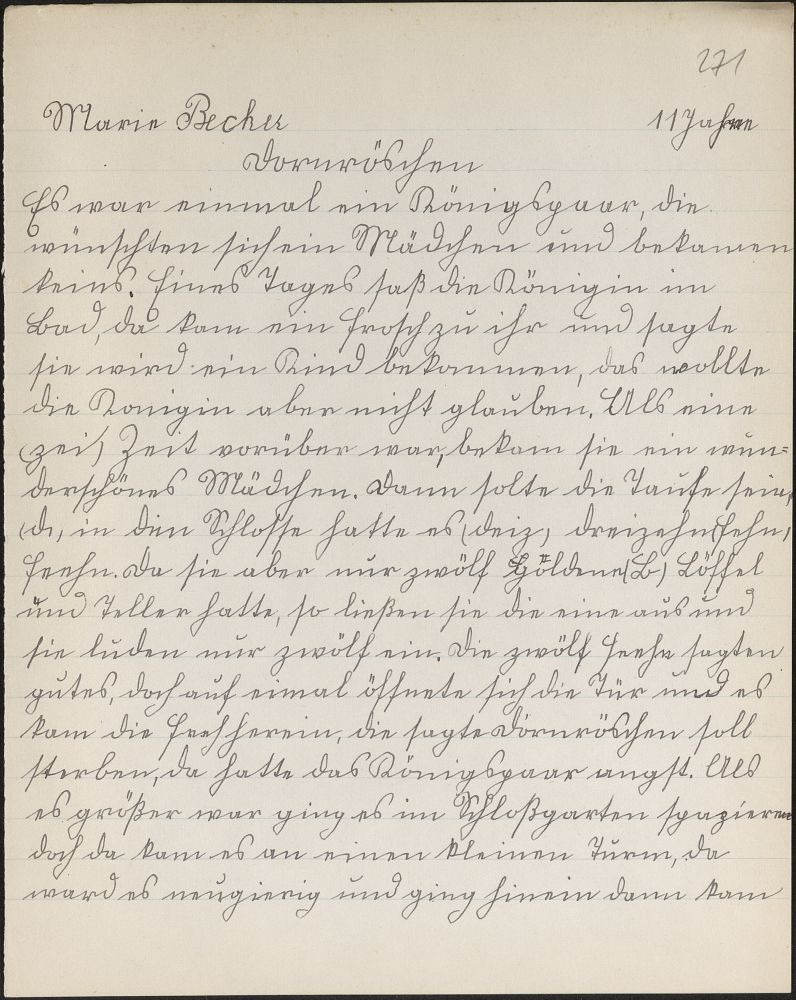 271
Marie Becher 11 Jahre
Dornröschen
Es war einmal ein Königspaar, die
wünschten sich ein Mädchen und bekamen
keins. Eines Tages saß die Königin im
Bad, da kam ein Frosch zu ihr und sagte
sie wird ein Kind bekommen, das wollte
die Konigin aber nicht glauben. Als eine
(zei) Zeit vorüber war, bekam sie ein wun=
derschönes Mädchen. Dann solte die Taufe sein,
(d), in den Schlosse hatte es (deiz) dreizehn (Fehn)
Feehn. Da sie aber nur zwölf Göldene (B) Löffel
und Teller hatte, so ließen sie die eine aus und
sie luden nur zwölf ein. Die zwölf Feehn sagten
gutes, doch auf eimal öffnete sich die Tür und es
kam die Freh herein, die sagte Dörnröschen soll
sterben, da hatte das Königspaar angst. Als
es größer war ging es im Schloßgarten spazieren
doch da kam es an einen kleinen Turm, da
ward es neugierig und ging hinein dann kam